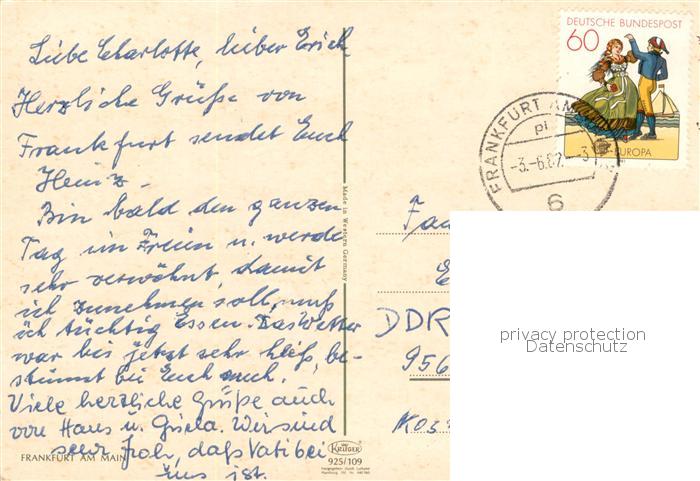 Liebe Charlotte, lieber Erich
Herzliche Grüße von
Frankfurt sendet Euch
Heinz.
Bin bald den ganzen
Tag im Freien u. werde
sehr verwöhnt, damit
ich zunehmen soll, muß
ich tüchtig Essen. Das Wetter
war bis jetzt sehr heiß, be-
stimmt bei Euch auch.
Viele herzliche Grüße auch
von Hans u. Gisela. Wir sind
sehr froh, daß Vati bei
uns ist.
FRANKFURT AM MAIN
Made in Western Germany
KRÜGER
925/109
DEUTSCHE BUNDESPOST
60
EUROPA
FRANKFURT AM
-3.-6.82.-3
6
DDR
956
privacy protection
Datenschutz